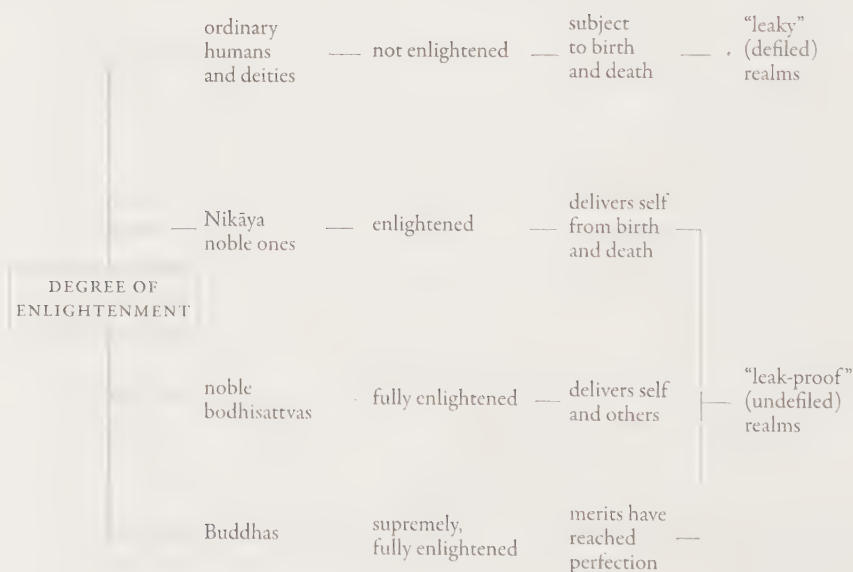 ordinary
humans
and deities
not enlightened
subject
to birth
and death
“leaky”
(defiled)
realms
Nikāya
noble ones
enlightened
delivers self
from birth
and death
DEGREE OF
ENLIGHTENMENT
noble
bodhisattvas
fully enlightened
delivers self
and others
“leak-proof”
(undefiled)
realms
Buddhas
supremely,
fully enlightened
merits have
reached
perfection